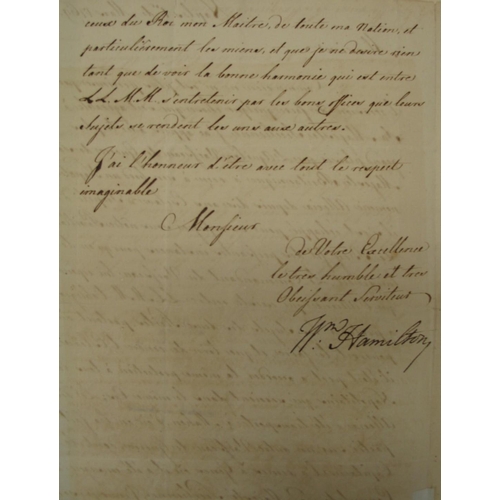 ceux du Roi mon Maitre, de toute ma Nation, et
particulièrement les miens, et que je ne desire rien
tant que de voir la bonne harmonie qui est entre
LL. MM. s'entretenir par les bons offices que leurs
Sujets se rendent les uns aux autres.
J'ai l'honneur d'être avec tout le respect
imaginable
Monsieur
de Votre Excellence
le très humble et très
Obeissant Serviteur
Wm. Hamilton